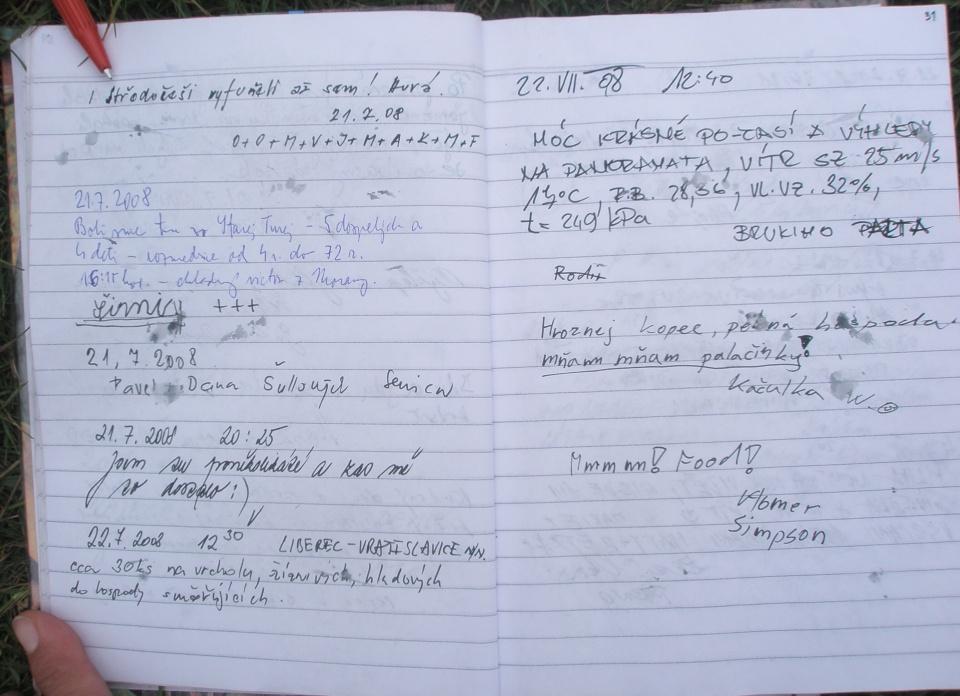 ! Středočeši vyfuněli až sem! Hurá!
21.7.08
O+O+M+V+J+M+A+K+M+F
21.7.2008
Boli sme tu zo Starej Turej – 5 dospelých a
4 deti – rozmedzie od 4 r. do 72 r.
16:15 hod. – chladný vietor z Moravy.
+++
21,7.2008
Pavel Dana Šulloých Senica
21.7.2008 20:25
22.7.2008 12 30 LIBEREC-VRATISLAVICE N/N.
cca 30ks na vrcholu, žíznivých, hladových
do hospody směřujících.
31
22.VII.08 12:40
MÓC KRÁSNÉ POČASÍ A VÝHLEDY
NA PANORAMATA, VÍTR SZ 25 m/s
13°C, R.B. 28,56, VL.VZ. 32%,
t= 249 kPa
BRUKIHO PARTA
Rodin
Hroznej kopec, pěkná hospoda
mňam mňam palačinky!
Káčulka W.
Mmmm! Food!
Homer
Simpson